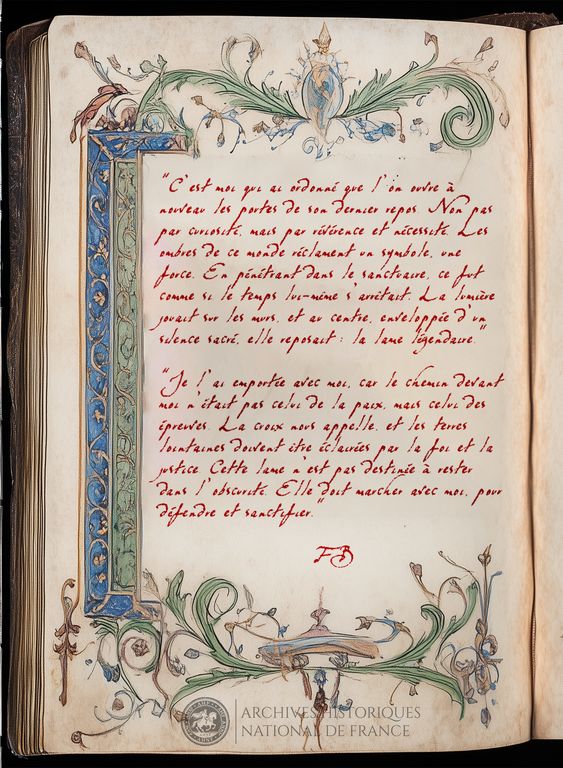 "C'est moi qui ai ordonné que l'on ouvre à
nouveau les portes de son dernier repos. Non pas
par curiosité, mais par révérence et nécessité. Les
ombres de ce monde réclament un symbole, une
force. En pénétrant dans le sanctuaire, ce fut
comme si le temps lui-même s'arrêtait. La lumière
jouait sur les murs, et au centre, enveloppée d'un
silence sacré, elle reposait : la lame légendaire."
"Je l'ai emportée avec moi, car le chemin devant
moi n'était pas celui de la paix, mais celui des
épreuves. La croix nous appelle, et les terres
lointaines doivent être éclairées par la foi et la
justice. Cette lame n'est pas destinée à rester
dans l'obscurité. Elle doit marcher avec moi, pour
défendre et sanctifier."
FB
ARCHIVES HISTORIQUES
NATIONAL DE FRANCE